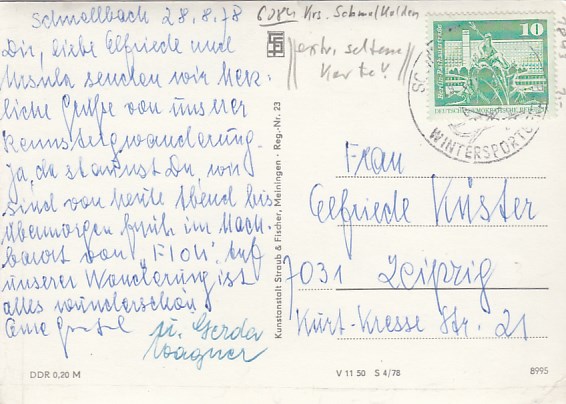 Schmallbach 28.8.78
Dir, liebe Elfriede und
Ursula senden wir herz-
liche Grüße von unsrer
Rennsteigwanderung.
Ja, da staunst Du, wir
sind von heute Abend bis
übermorgen früh im Nach-
barort von "Floh". Auf
unserer Wanderung ist
alles wunderschön
Eure Gretel
u. Gerda
Wagner
Krs. Schmalkalden
extr. seltene
Karte!
10
DEUTSCHE DEMOKRATISCHE REPUBLIK
WINTERSPORT
Frau
Elfriede Küster
7031 Leipzig
Kurt-Kresse Str. 21
Kunstanstalt Straub & Fischer, Meiningen · Reg.-Nr. 23
DDR 0,20 M
V 11 50 S 4/78
8995